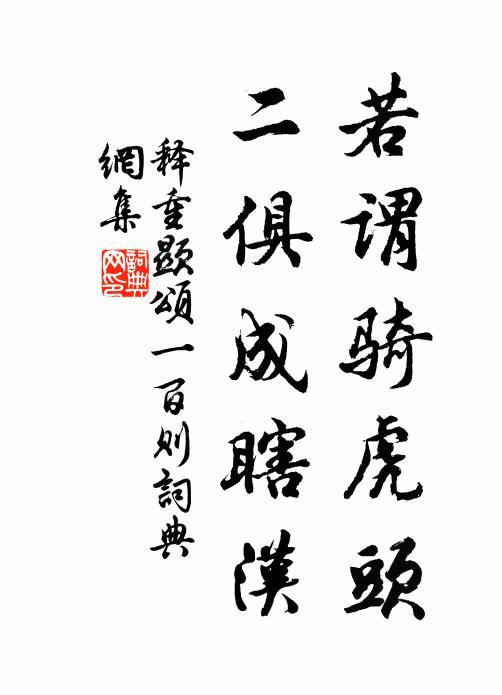 若谓骑虎頭
二俱成瞎漢
释重顯頌一百则詞典
網集
詞典
网印